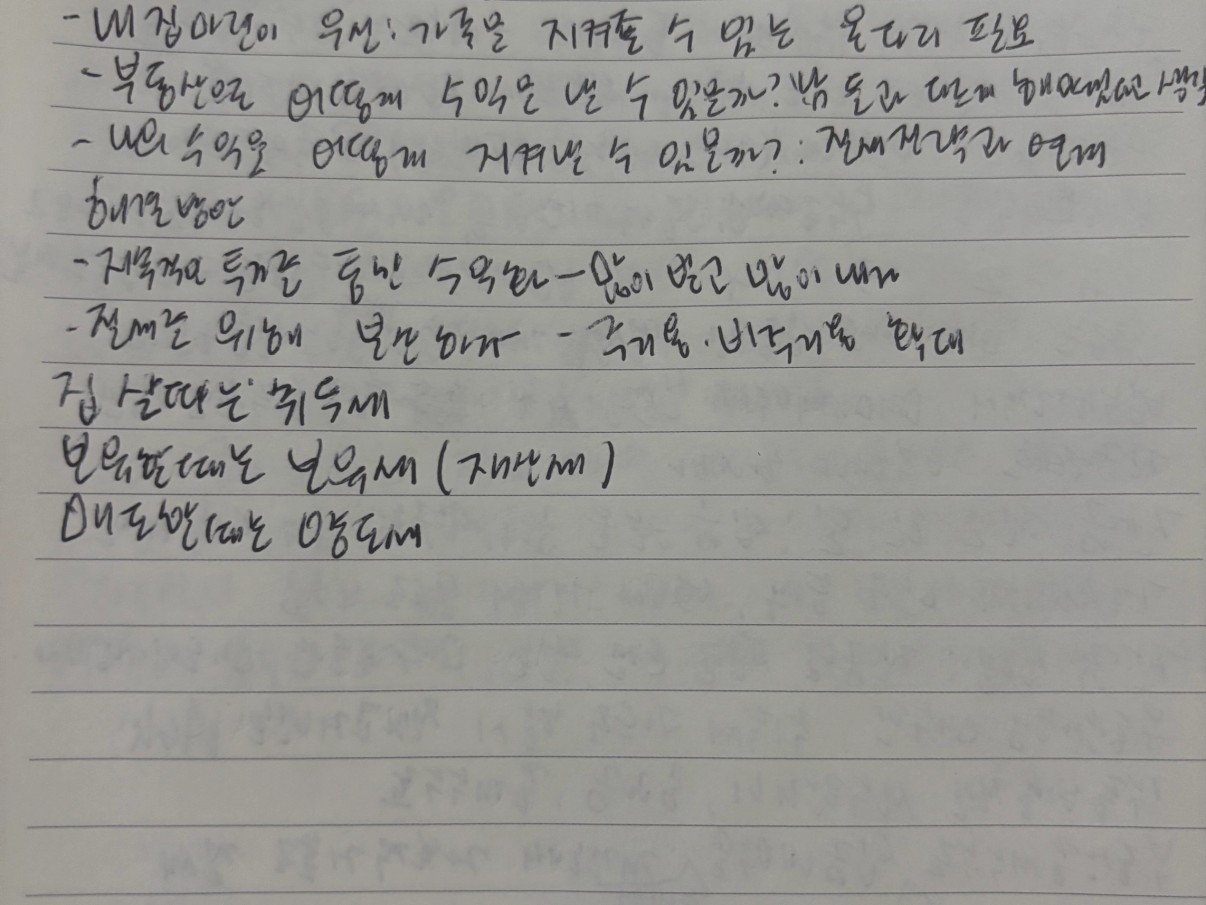 - 내 집 마련이 우선: 가족을 지켜줄 수 있는 울타리 필요
- 부동산으로 어떻게 수익을 낼 수 있을까? 남들과 다르게 해야한다고 생각
- 나의 수익을 어떻게 지켜낼 수 있을까?: 절세전략과 연계
해결방안
- 지목적인 투자를 통한 수익화 - 많이 벌고 많이 내자
- 절세를 위해 분산하자 - 주거용·비주거용 확대
집 살때는 취득세
보유할때는 보유세 (재산세)
매도할때는 양도세